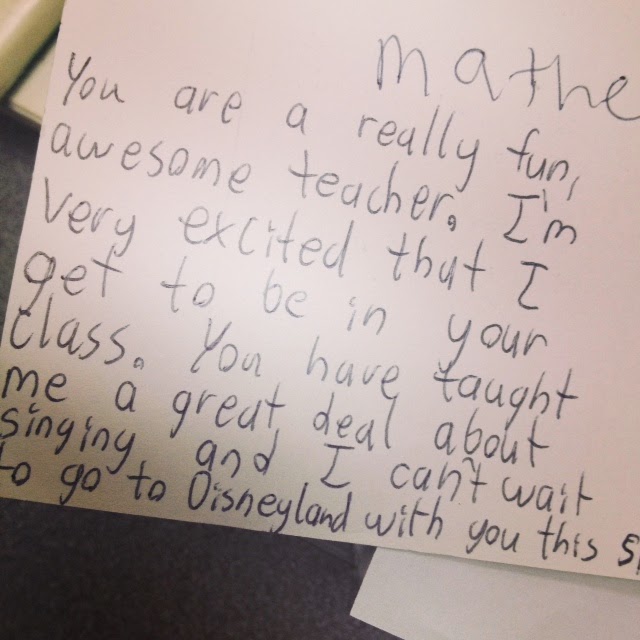 Mathe
You are a really fun,
awesome teacher. I'm
very excited that I
get to be in your
class. You have taught
me a great deal about
singing and I can't wait
to go to Disneyland with you this